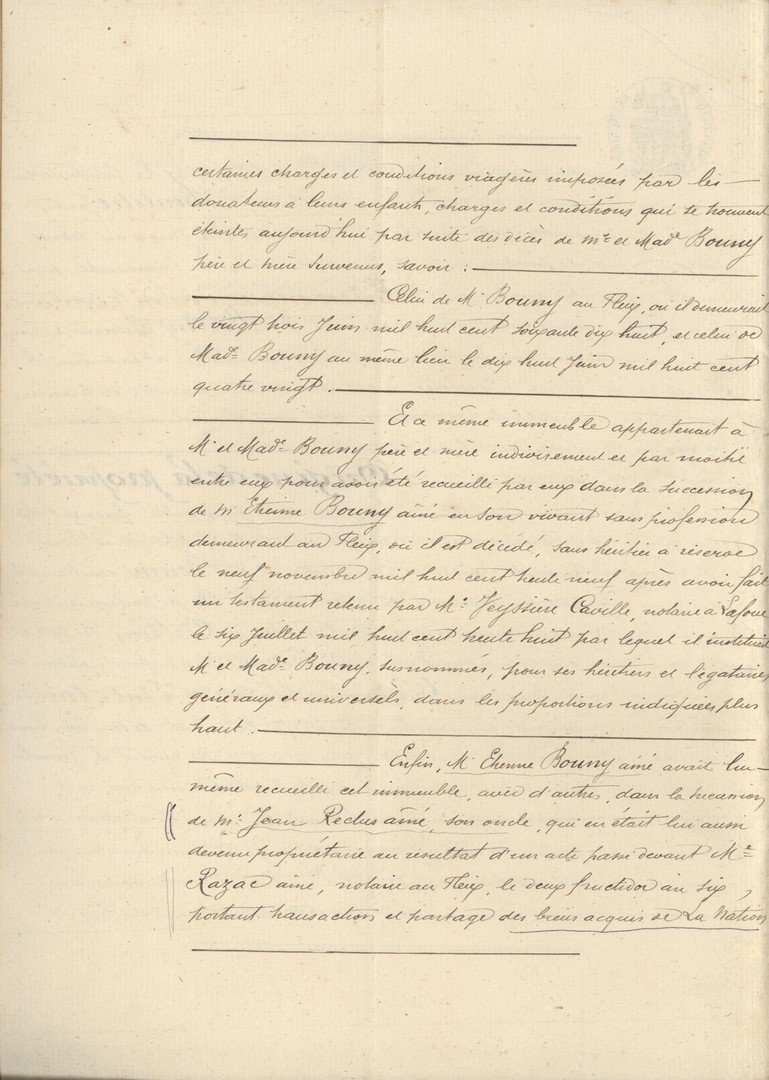 certaines charges et conditions viagères imposées par les
donateurs à leurs enfants, charges et conditions qui se trouvent
éteintes aujourd'hui par suite des décès de Mr et Made Bouny
père et mère survenus, savoir :
Celui de Mr Bouny au Fleix, où il demeurait
le vingt trois Juin mil huit cent soixante dix huit, et celui de
Made Bouny au même lieu le dix huit Juin mil huit cent
quatre vingt.
Et ce même immeuble appartenait à
Mr et Made Bouny père et mère indivisément et par moitié
entre eux pour avoir été recueilli par eux dans la succession
de Mr Etienne Bouny aîné en son vivant sans profession
demeurant au Fleix, où il est décédé, sans héritier à réserve
le neuf novembre mil huit cent trente neuf après avoir fait
un testament retenu par Me Veyssière Caville, notaire à Laforce
le six Juillet mil huit cent trente huit par lequel il instituait
Mr et Made Bouny, susnommés, pour ses héritiers et légataires
généraux et universels, dans les proportions indiquées plus
haut.
Enfin, Mr Etienne Bouny aîné avait lui-
même recueilli cet immeuble, avec d'autres, dans la succession
de Mr Jean Reclus aîné, son oncle, qui en était lui aussi
devenu propriétaire au résultat d'un acte passé devant Me
Razac aîné, notaire au Fleix, le deux fructidor an six,
portant transaction et partage des biens acquis de La Nation